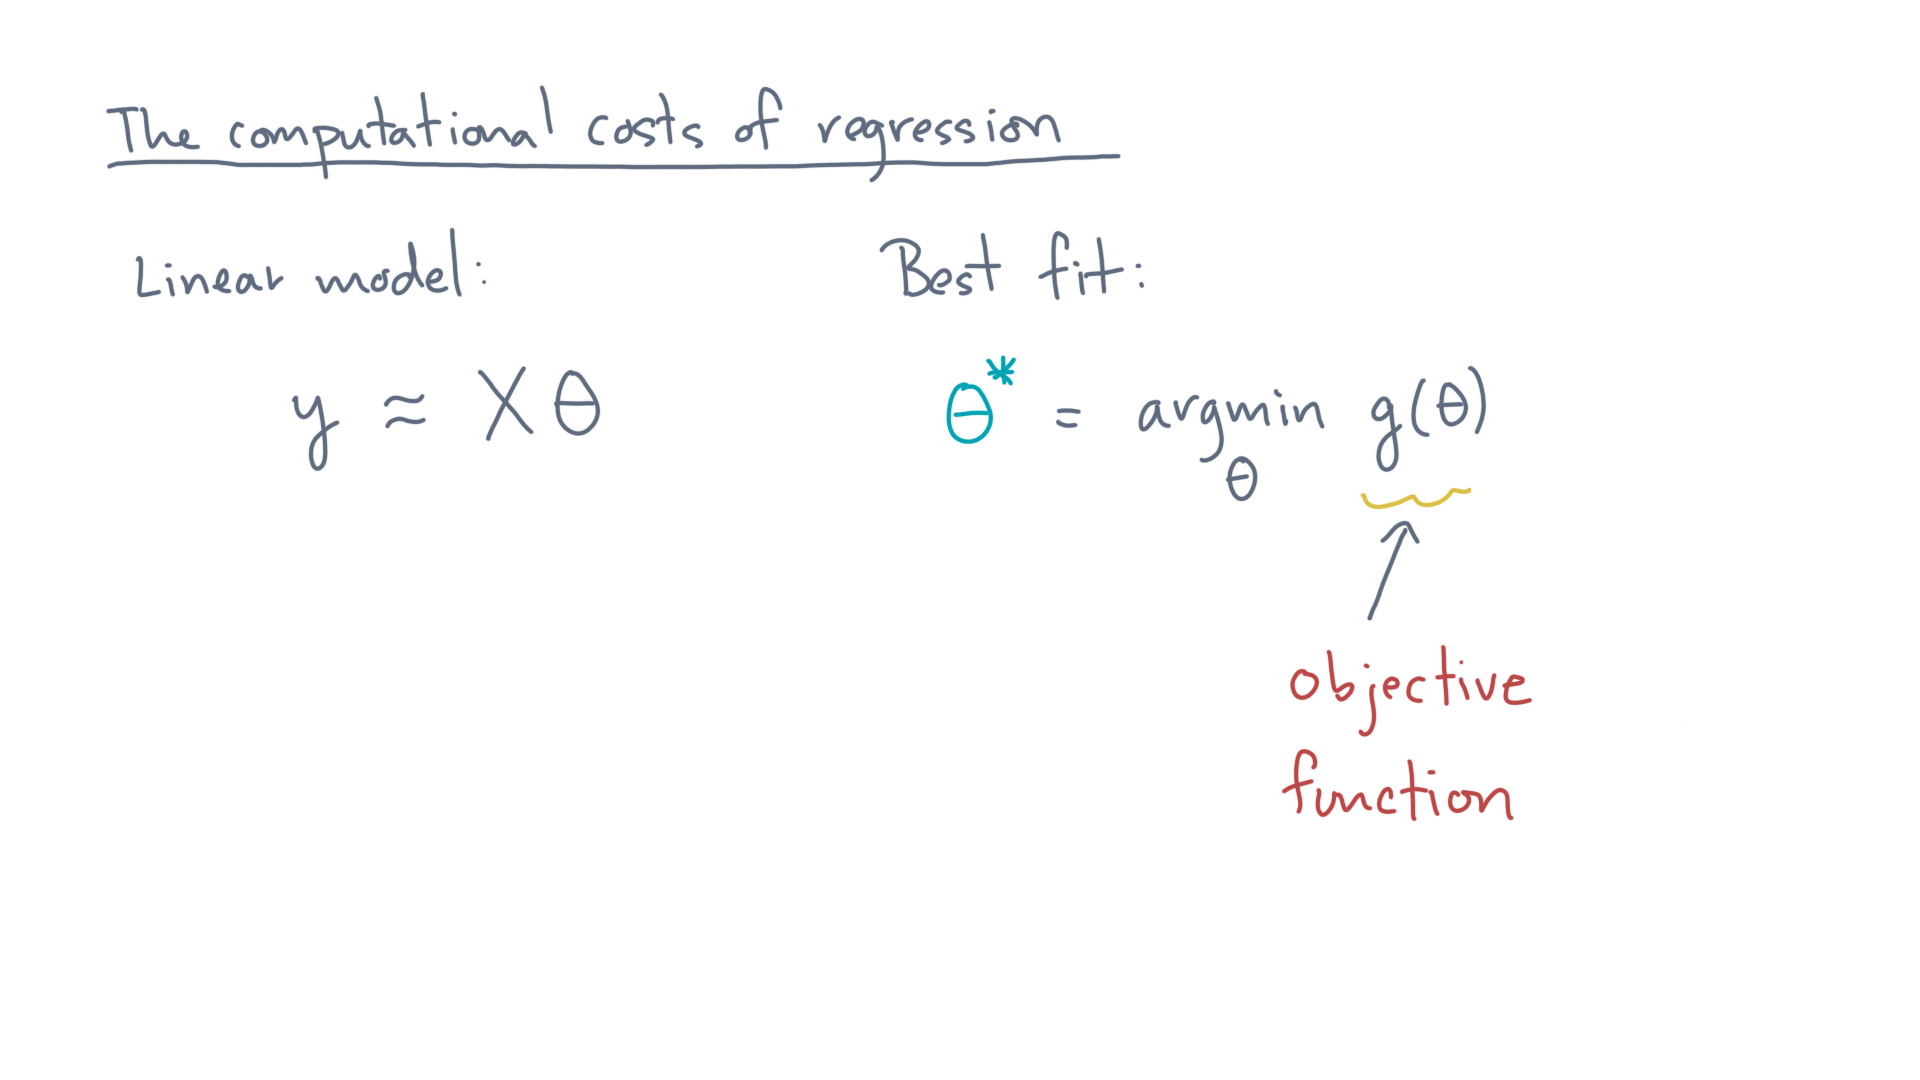 The computational costs of regression
Linear model:
y ≈ Xθ
Best fit:
θ* = argmin g(θ)
θ
objective
function